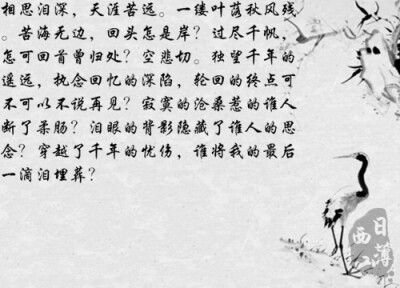 相思泪深，天涯苦远。一缕叶荡秋风残
。苦海无边，回头怎是岸？过尽千帆，
怎可回首曾归处？空悲切。独望千年的
遥远，执念回忆的深陷，轮回的终点可
不可以不说再见？寂寞的沧桑惹的谁人
断了柔肠？泪眼的背影隐藏了谁人的思
念？穿越了千年的忧伤，谁将我的最后
一滴泪埋葬？
日薄
西山